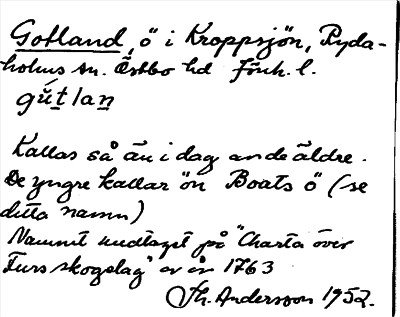 Gotland, ö i Kroppsjön, Ryda-
holms sn. Östbo hd Jönk. l.
gŭt́lan
Kallas så än i dag av de äldre.
De yngre kallar ön Boats ö (se
detta namn)
Namnet undtaget på "Charta över
Furs skogslag" av år 1763
Th. Andersson 1952.